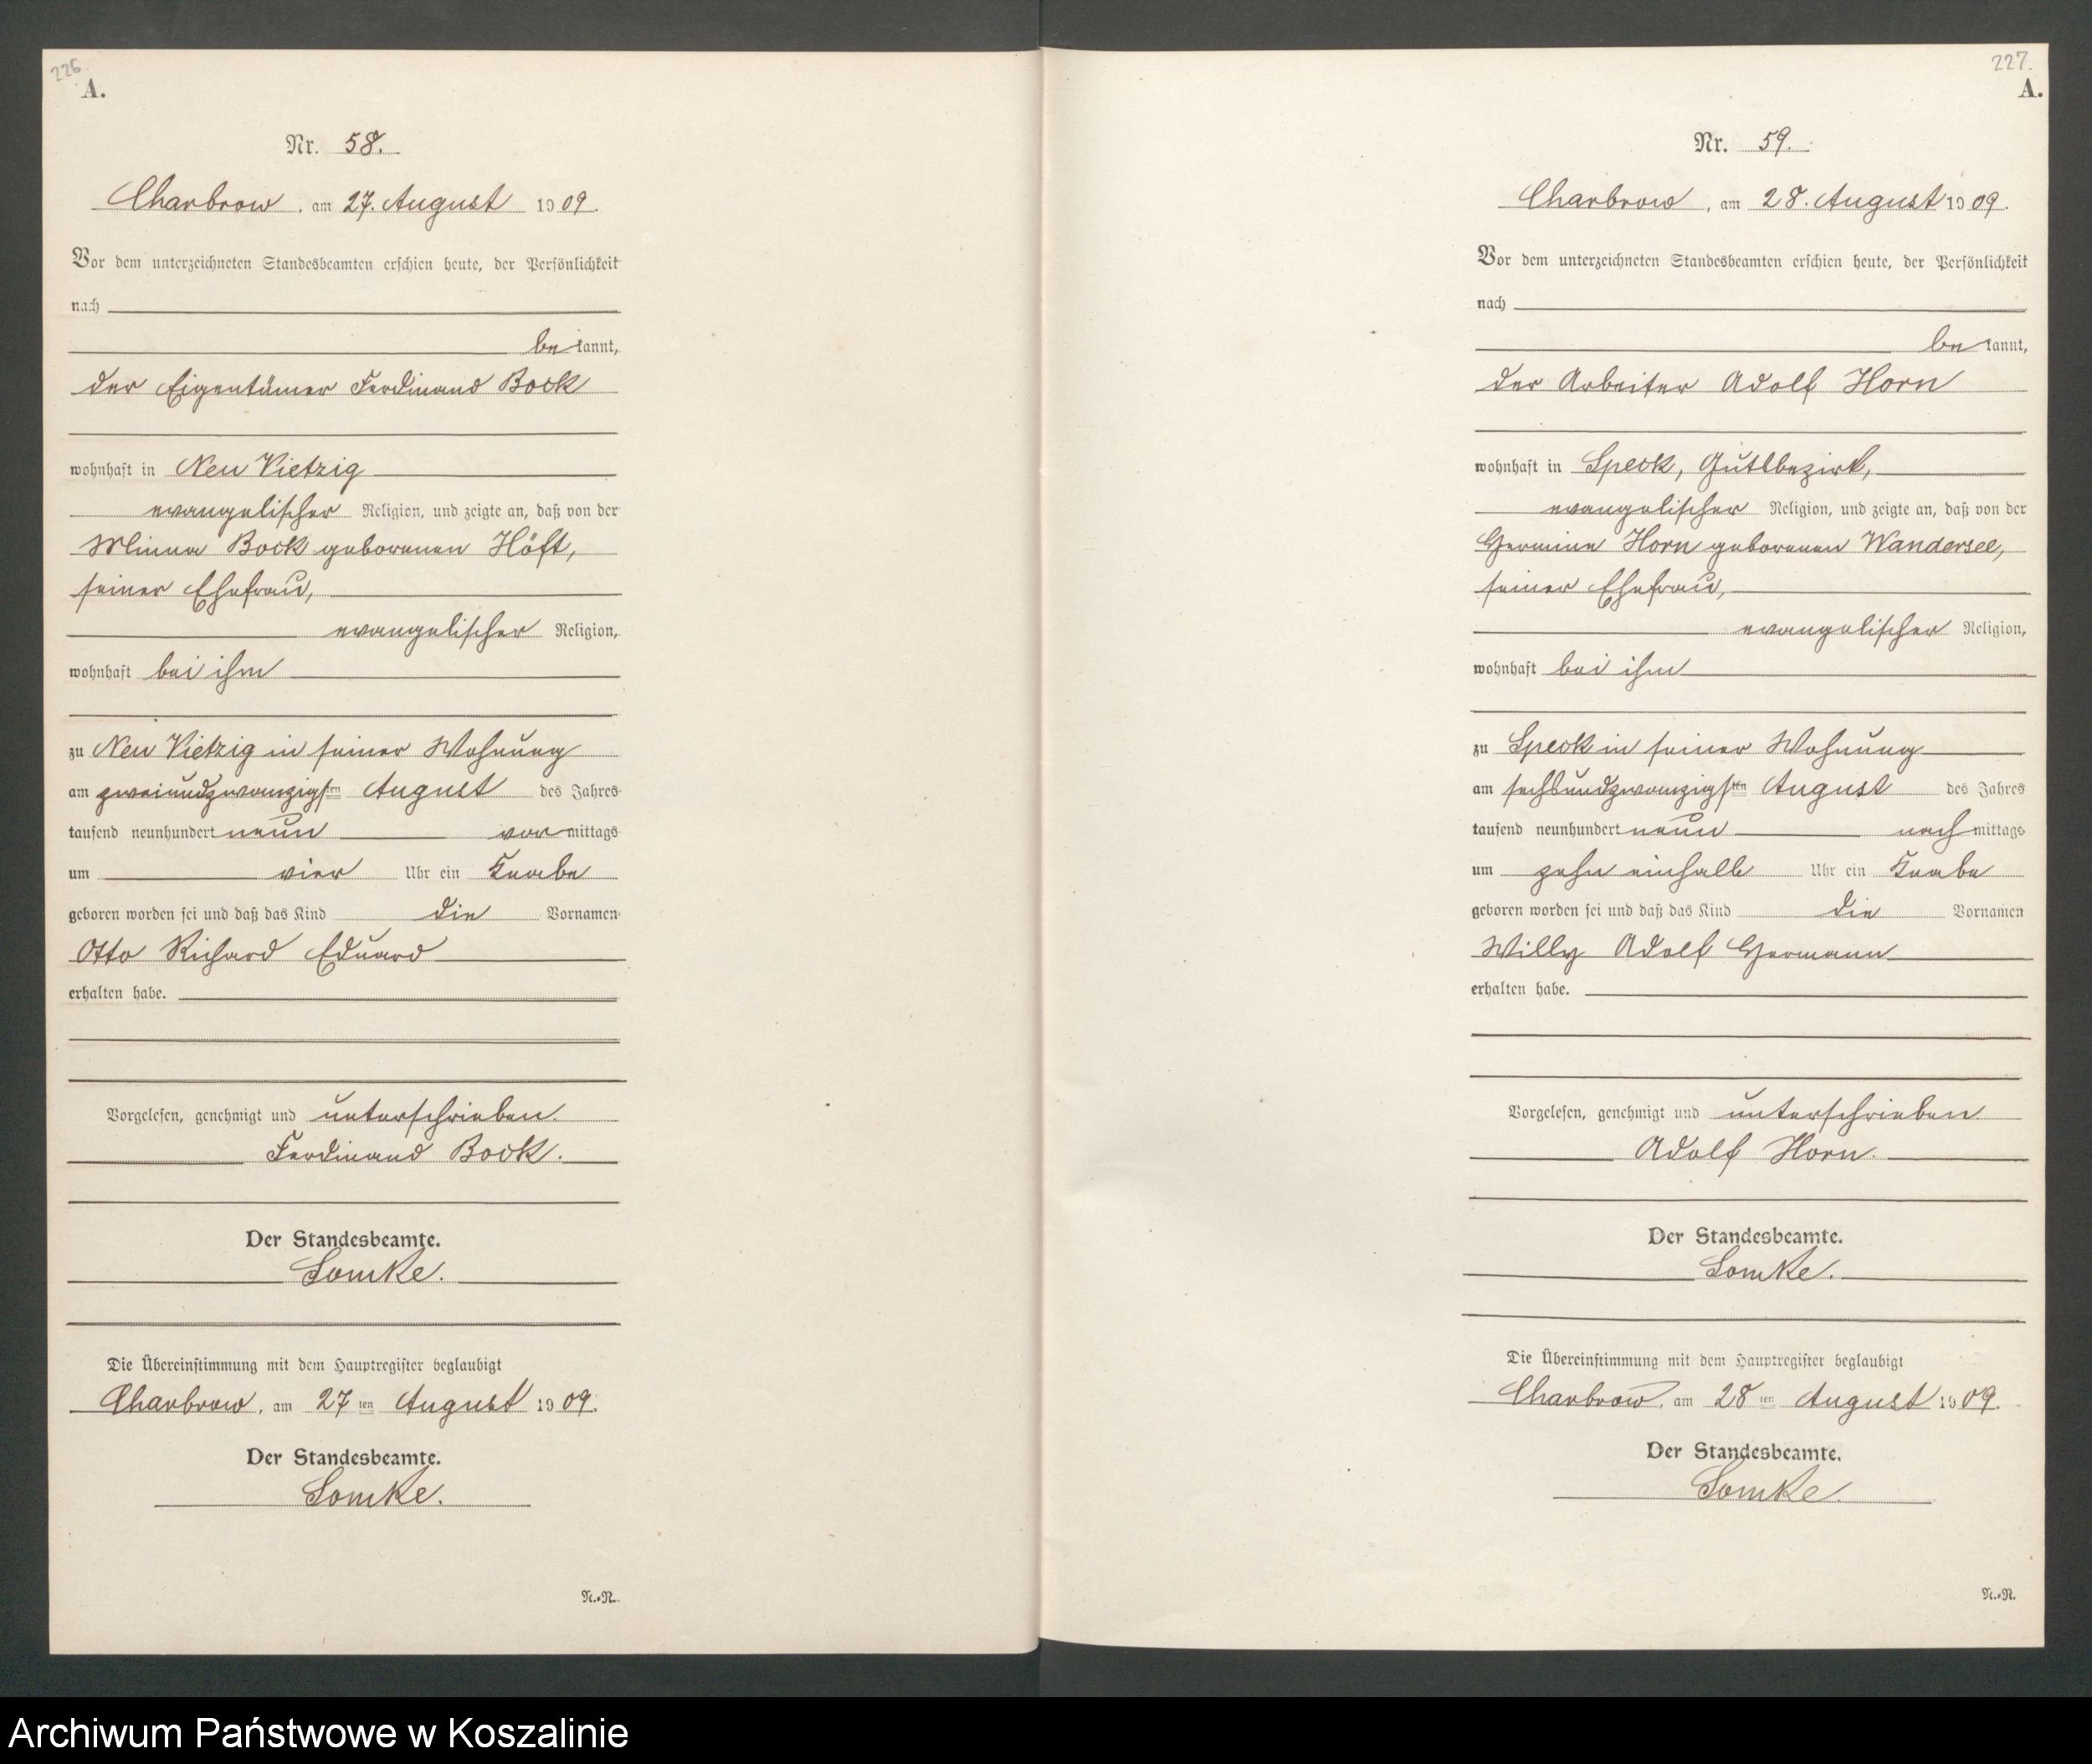 226
A.
Nr. 58.
Charbrow, am 27. August 1909.
Vor dem unterzeichneten Standesbeamten erschien heute, der Persönlichkeit
nach
bekannt,
der Eigentümer Ferdinand Bock
wohnhaft in Neu Vietzig
evangelischer Religion, und zeigte an, daß von der
Minna Bock geborenen Höft,
seiner Ehefrau,
evangelischer Religion,
wohnhaft bei ihm
zu Neu Vietzig in seiner Wohnung
am zweiundzwanzigsten August des Jahres
tausend neunhundert neun vormittags
um vier Uhr ein Knabe
geboren worden sei und daß das Kind die Vornamen
Otto Richard Eduard
erhalten habe.
Vorgelesen, genehmigt und unterschrieben.
Ferdinand Bock.
Der Standesbeamte.
Lomke.
Die Übereinstimmung mit dem Hauptregister beglaubigt
Charbrow, am 27 ten August 1909.
Der Standesbeamte.
Lomke.
N.=R.
227.
A.
Nr. 59.
Charbrow, am 28. August 1909.
Vor dem unterzeichneten Standesbeamten erschien heute, der Persönlichkeit
nach
bekannt,
der Arbeiter Adolf Horn
wohnhaft in Speck, Gutsbezirk,
evangelischer Religion, und zeigte an, daß von der
Hermine Horn geborenen Wandersee,
seiner Ehefrau,
evangelischer Religion,
wohnhaft bei ihm
zu Speck in seiner Wohnung
am sechsundzwanzigsten August des Jahres
tausend neunhundert neun nachmittags
um zehn einhalb Uhr ein Knabe
geboren worden sei und daß das Kind die Vornamen
Willy Adolf Hermann
erhalten habe.
Vorgelesen, genehmigt und unterschrieben
Adolf Horn.
Der Standesbeamte.
Lomke.
Die Übereinstimmung mit dem Hauptregister beglaubigt
Charbrow, am 28 ten August 1909.
Der Standesbeamte.
Lomke.
N.=R.
Archiwum Państwowe w Koszalinie